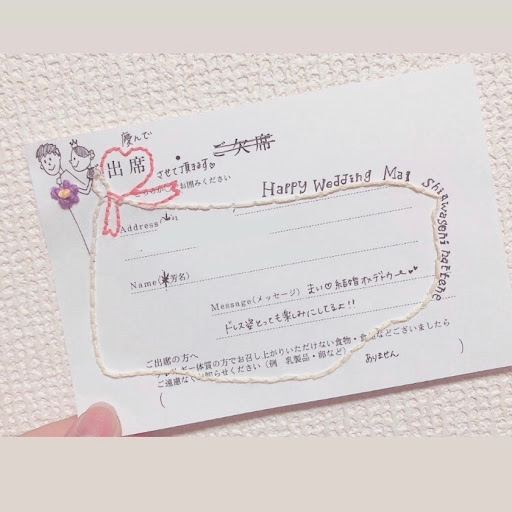 慶んで
出席
・
ご欠席
させて頂きます♡
お囲みください
Happy Wedding Mai Shiawaseni nattene
Address
Name(芳名)
Message(メッセージ) まい♡結婚おめでとう〜♥♥
ドレス姿とっても楽しみにしてるよ!!
ご出席の方へ
体質の方でお召し上がりいただけない食物・食材などございましたら
ご遠慮なくお知らせください (例 乳製品・卵など)
ありません
( )